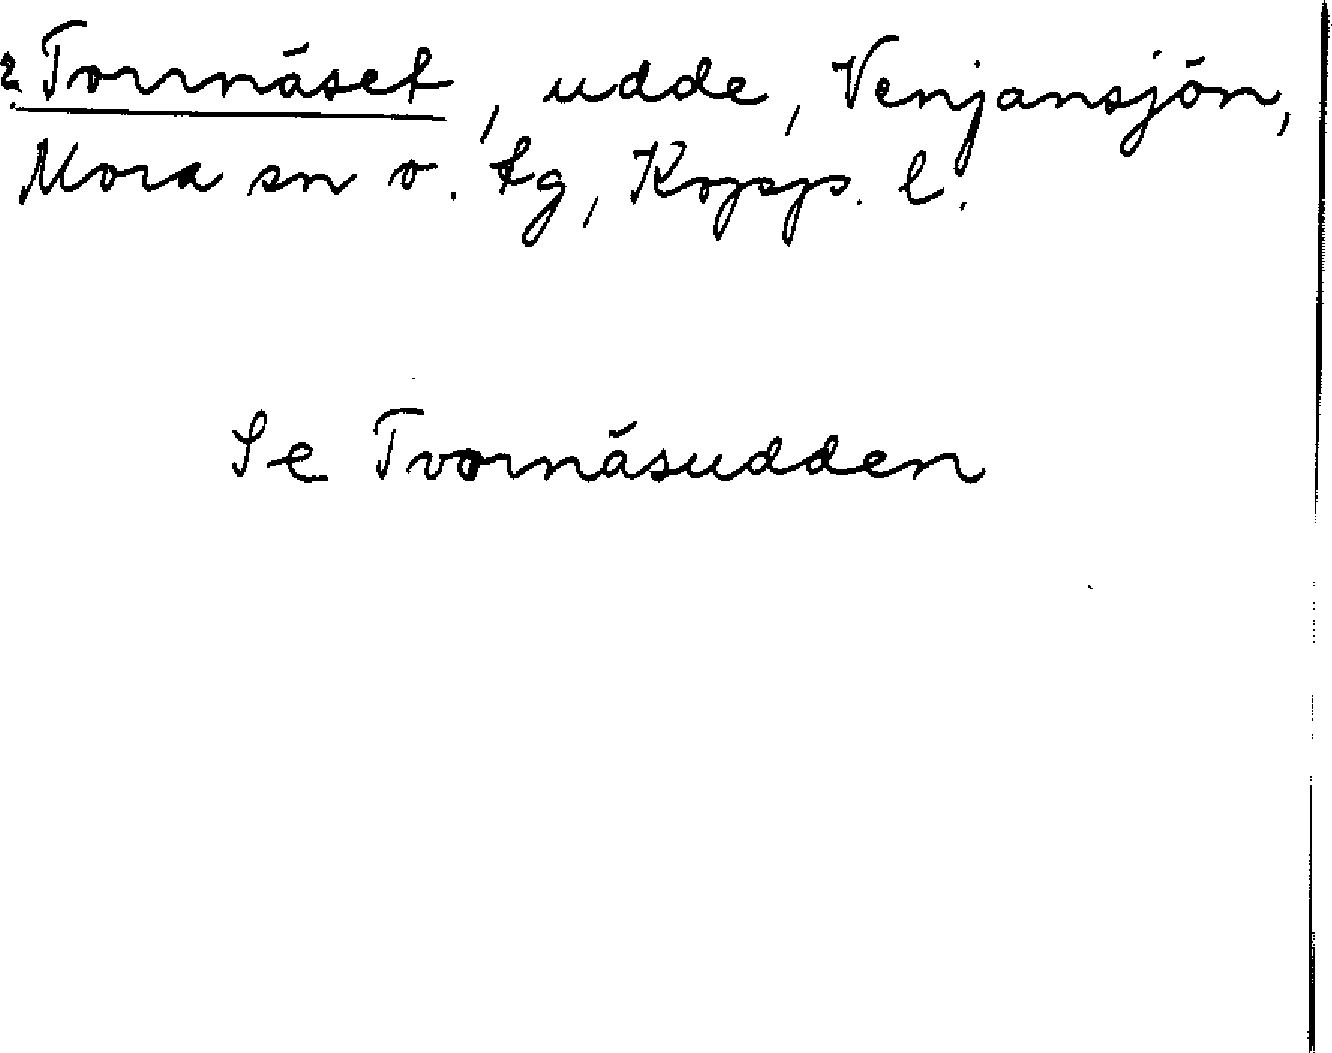 ? Tornnäset, udde, Venjansjön,
Mora sn o. tg, Kopp. l.
Se Tvornäsudden